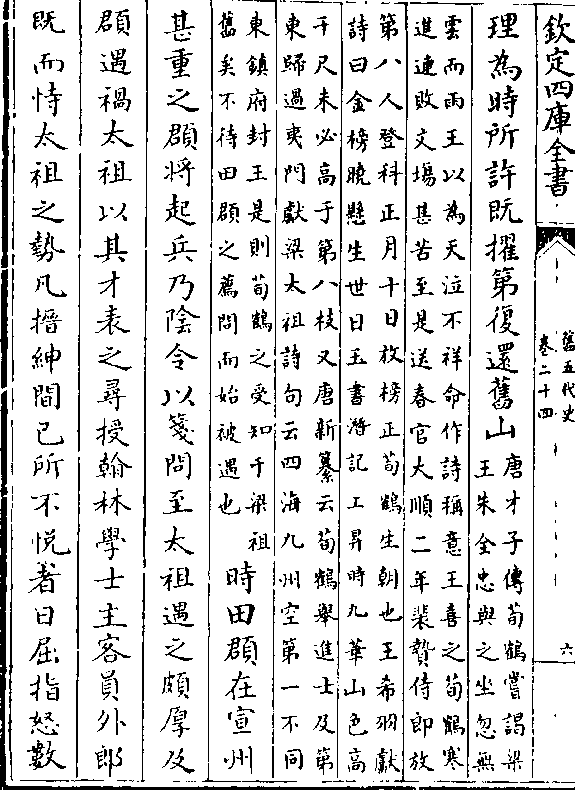 欽定四庫全書
舊五代史
卷二十四
六
理為時所許既擢第復還舊山
唐才子傳荀鶴嘗謁梁
王朱全忠與之坐忽無
雲而雨王以為天泣不祥命作詩稱意王喜之荀鶴寒
進連敗文塲甚苦至是送春官大順二年裴贄侍郎放
第八人登科正月十日放榜正荀鶴生朝也王希羽獻
詩曰金榜曉懸生世日玉書潛記上昇時九華山色高
千尺未必高于第八枝又唐新纂云荀鶴舉進士及第
東歸過夷門獻梁太祖詩句云四海九州空第一不同
東鎮府封王是則荀鶴之受知于梁祖
舊矣不待田頵之薦問而始被遇也
時田頵在宣州
甚重之頵將起兵乃陰令以箋問至太祖遇之頗厚及
頵遇禍太祖以其才表之尋授翰林學士主客員外郎
既而恃太祖之勢凡搢紳間己所不悅者日屈指怒數